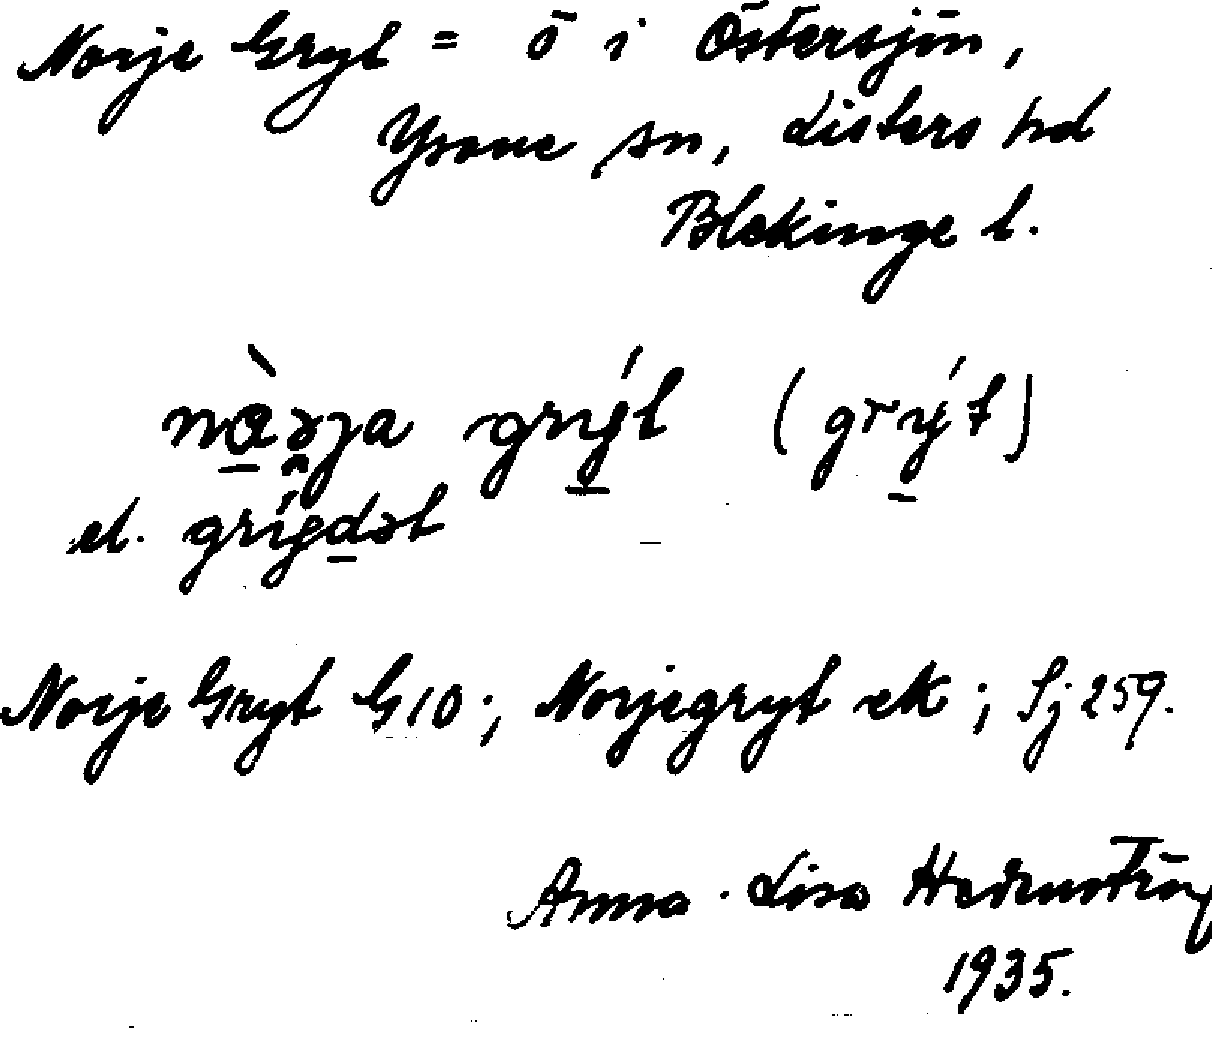 Norje Gryt = ö i Östersjön,
Ysane sn, Listers hd
Blekinge l.
grýt (grýt)
el.
Norje Gryt G10; Norjegryt ek; Sj 259.
Anna-Lisa Hedenström
1935.